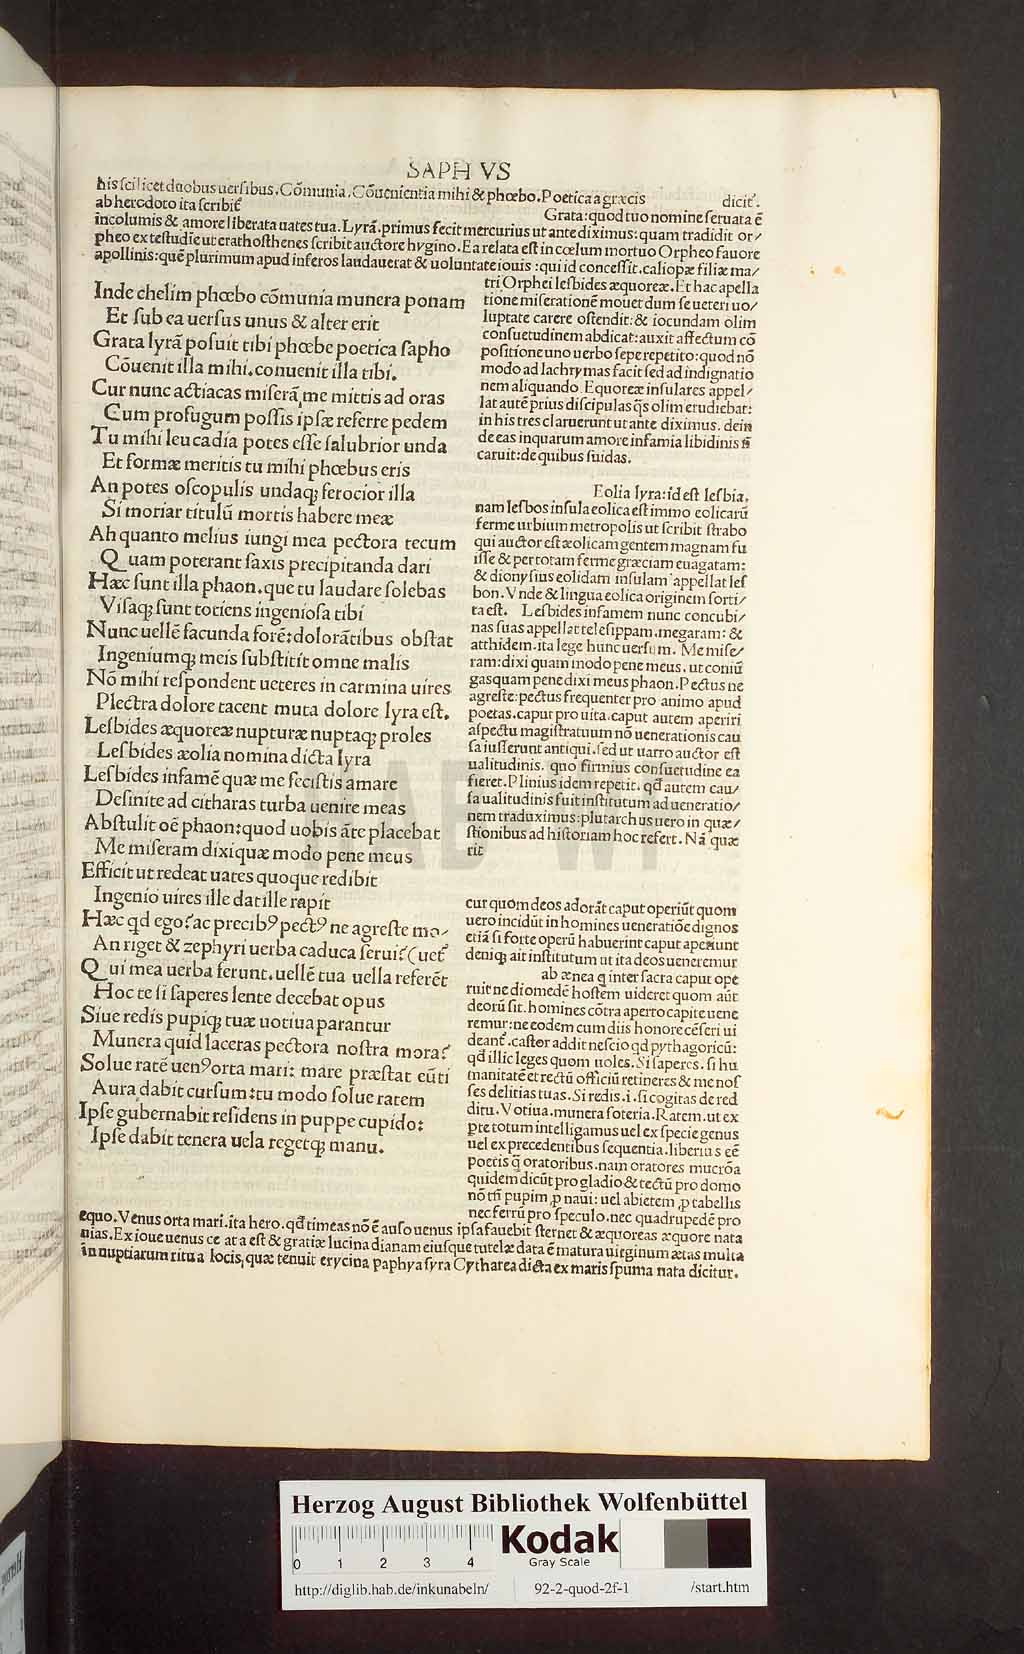 SAPH VS
his scilicet duobus uersibus. Cõmunia. Cõuenientia mihi & phœbo. Poetica a græcis dicit᷑.
ab herodoto ita scribit᷑ Grata: quod tuo nomine seruata ẽ
incolumis & amore liberata uates tua. Lyrã. primus fecit mercurius ut ante diximus: quam tradidit or/
pheo ex testudie ut erathosthenes scribit auctore hygino. Ea relata est in cœlum mortuo Orpheo fauore
apollinis: quẽ plurimum apud inferos laudauerat & uoluntate iouis: qui id concessit. caliopæ filiæ ma/
Inde chelim phœbo cõmunia munera ponam
Et sub ea uersus unus & alter erit
Grata lyrã posuit tibi phœbe poetica sapho
Cõuenit illa mihi. conuenit illa tibi.
Cur nunc actiacas miserã me mittis ad oras
Cum profugum possis ipsæ referre pedem
Tu mihi leucadia potes esse salubrior unda
Et formæ meritis tu mihi phœbus eris
An potes o scopulis undaq; ferocior illa
Si moriar titulũ mortis habere meæ
Ah quanto melius iungi mea pectora tecum
Quam poterant saxis precipitanda dari
Hæc sunt illa phaon. que tu laudare solebas
Visaq; sunt totiens ingeniosa tibi
Nunc uellẽ facunda forẽ: dolorãtibus obstat
Ingeniumq; meis substitit omne malis
Nõ mihi respondent ueteres in carmina uires
Plectra dolore tacent muta dolore lyra est.
Lesbides æquoreæ nupturæ nuptaq; proles
Lesbides æolia nomina dicta lyra
Lesbides infamẽ quæ me fecistis amare
Desinite ad citharas turba uenire meas
Abstulit oẽ phaon: quod uobis ãte placebat
Me miseram dixi quæ modo pene meus
Efficit ut redeat uates quoque redibit
Ingenio uires ille dat ille rapit
Hæc qd ego? ac precib⁹ pect⁹ ne agreste mo/
An riget & zephyri uerba caduca ferui? (uet᷑
Qui mea uerba ferunt. uellẽ tua uella referẽt
Hoc te si saperes lente decebat opus
Siue redis pupiq; tuæ uotiua parantur
Munera quid laceras pectora nostra mora?
Solue ratẽ uen⁹ orta mari: mare præstat eũti
Aura dabit cursum: tu modo solue ratem
Ipse gubernabit residens in puppe cupido:
Ipse dabit tenera uela regetq; manu.
tri Orphei lesbides æquoreæ. Et hac apella
tione miserationẽ mouet dum se ueteri uo/
luptate carere ostendit: & iocundam olim
consuetudinem abdicat: auxit affectum cõ
positione uno uerbo sepe repetito: quod nõ
modo ad lachrymas facit sed ad indignatio
nem aliquando. Equoreæ insulares appel/
lat autẽ prius discipulas q̃s olim erudiebat:
in his tres claruerunt ut ante diximus. dein
de eas in quarum amore infamia libidinis ñ
caruit: de quibus suidas.
Eolia lyra: id est lesbia.
nam lesbos insula eolica est immo eolicarũ
ferme urbium metropolis ut scribit strabo
qui auctor est æolicam gentem magnam fu
isse & per totam ferme græciam euagatam:
& dionysius eolidam insulam appellat les
bon. Vnde & lingua eolica originem sorti/
ta est. Lesbides infamem nunc concubi/
nas suas appellat telesippam. megaram: &
atthidem. ita lege hunc uersum. Me mise/
ram: dixi quam modo pene meus. ut coniũ
gas quam pene dixi meus phaon. Pectus ne
agreste: pectus frequenter pro animo apud
poetas. caput pro uita. caput autem aperiri
aspectu magistratuum nõ uenerationis cau
sa iusserunt antiqui. sed ut uarro auctor est
ualitudinis. quo firmius consuetudine ea
fieret. Plinius idem repetit. qđ autem cau/
sa ualitudinis fuit institutum ad ueneratio/
nem traduximus: plutarchus uero in quæ/
stionibus ad historiam hoc refert. Nã quæ
rit
cur quom deos adorãt caput operiũt quom
uero incidũt in homines ueneratiõe dignos
etiã si forte operũ habuerint caput aperiunt
deniq; ait institutum ut ita deos ueneremur
ab ænea q inter sacra caput ope
ruit ne diomedẽ hostem uideret quom aũt
deorũ sit. homines cõtra aperto capite uene
remur: ne eodem cum diis honore cẽseri ui
deant᷑. castor addit nescio qd pythagoricũ:
qđ illic leges quom uoles. Si saperes. si hu
manitatẽ et rectũ officiũ retineres & me nos
ses delitias tuas. Si redis. i. si cogitas de red
ditu. Votiua. munera soteria. Ratem. ut ex
p̃te totum intelligamus uel ex specie genus
uel ex precedentibus sequentia. liberius eẽ
poetis q̃ oratoribus. nam oratores mucrõa
quidem dicũt pro gladio & tectũ pro domo
nõ tñ pupim ꝓ naui: uel abietem ꝓ tabellis
nec ferrũ pro speculo. nec quadrupedẽ pro
equo. Venus orta mari. ita hero. qđ timeas nõ ẽ auso uenus ipsa fauebit sternet & æquoreas æquore nata
uias. Ex ioue uenus ce ata est & gratiæ lucina dianam eiusque tutelæ data ẽ matura uirginum ætas multa
in nuptiarum ritu a locis, quæ tenuit erycina paphya syra Cytharea dicta ex maris spuma nata dicitur.
HAB WF
Herzog August Bibliothek Wolfenbüttel
0 1 2 3 4
Kodak
Gray Scale
http://diglib.hab.de/inkunabeln/ 92-2-quod-2f-1 /start.htm